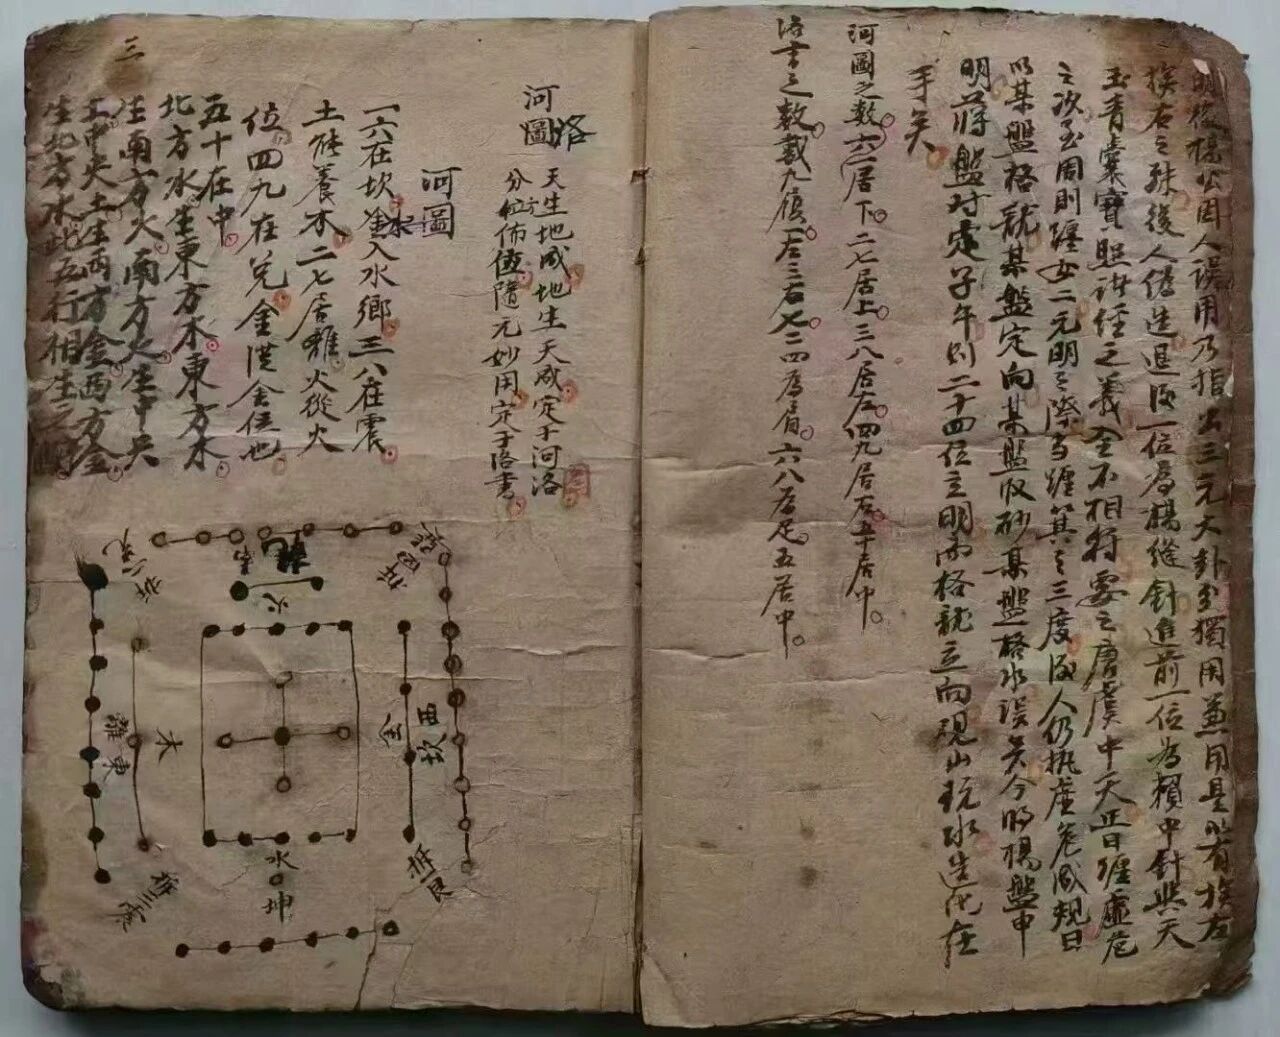 明後楊公因人誤用乃指出三元大卦分獨用兼用是以有挨左
挨右之殊後人偽造退後一位為楊縫針進前一位為賴中針與天
玉青囊寶照諸經之義全不相符要之唐虞中天正日纏虛危
之次至周則纏女二元明之際日纏箕之三度後人仍執虛危成規曰
以某盤格龍某盤定向某盤収砂某盤格水誤矣今將楊盤申
明蔣盤対定子午則二十四位立明而格龍立向观山玩水造化在
手矣
河圖之數一六居下二七居上三八居左四九居右五十居中
洛書之數戴九履一左三右七二四為肩六八為足五居中
河洛圖
天生地成地生天成定于河洛
分位佈值隨元妙用定于洛書
河圖
一六在坎金入水鄉三八在震
土能養木二七居離火從火
位四九在兌金從金位也
五十在中
北方水生東方木東方木
生南方火南方火生中央
土中央土生西方金西方金
生北方水此五行相生之
三
火
木
離東
金
西坎
水
坤